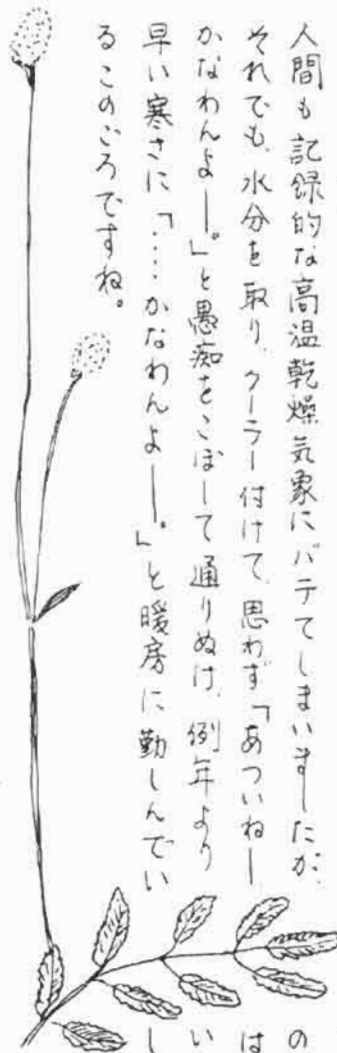 の
は
い
し
人間も記録的な高温乾燥気象にバテてしまいましたが、
それでも、水分を取り、クーラー付けて、思わず「あついねー
かなわんよー。」と愚痴をこぼして通りぬけ、例年より
早い寒さに「‥‥かなわんよー。」と暖房に勤しんでい
るこのごろですね。